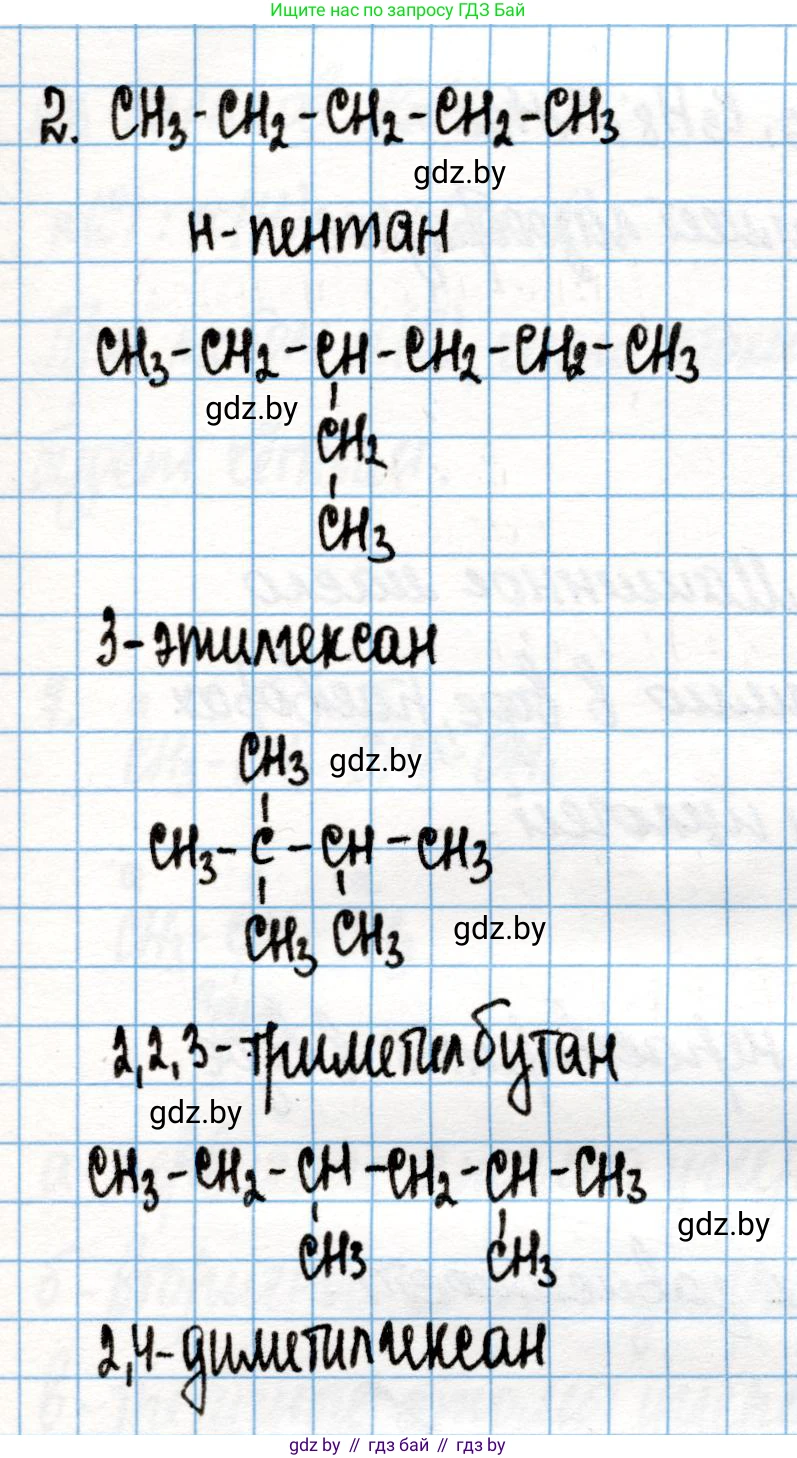 Ищите нас по запросу ГДЗ Бай
2. CH3-CH2-CH2-CH2-CH3
gdz.by
н-пентан
CH3-CH2-CH-CH2-CH2-CH3
gdz.by
CH2
CH3
3-этилгексан
CH3 gdz.by
CH3-C-CH-CH3
CH3 CH3 gdz.by
2,2,3-триметилбутан
gdz.by
CH3-CH2-CH-CH2-CH-CH3
gdz.by
CH3 CH3
2,4-диметилгексан
gdz.by // гдз бай // gdz.by